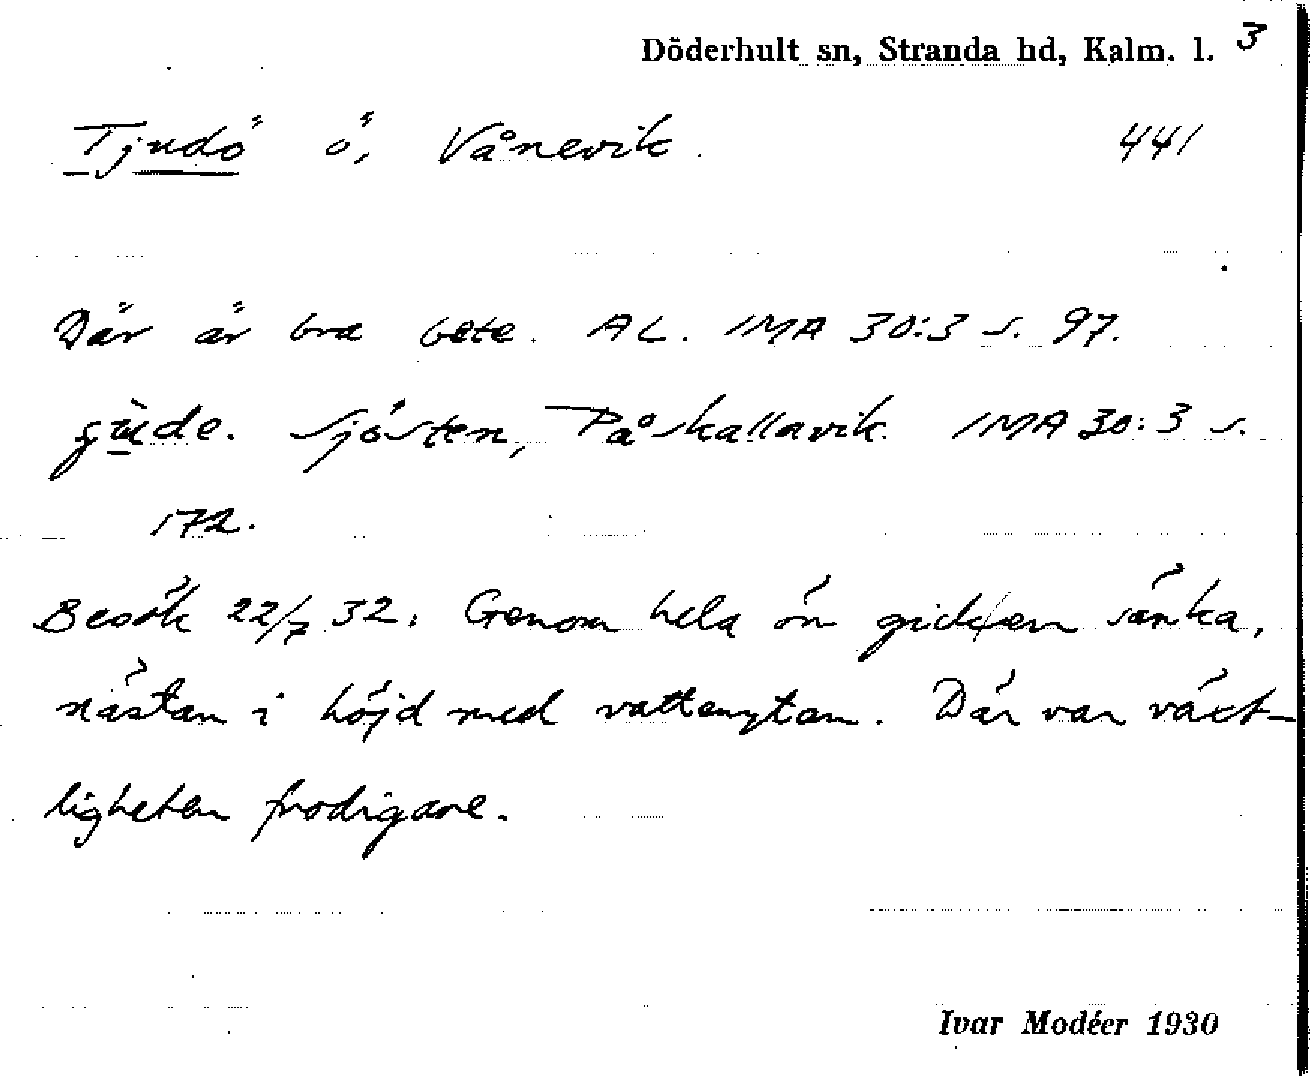 Döderhult sn, Stranda hd, Kalm. l. 3
Tjudö ö, Vånevik. 441
Där är bra bete. AL. IMA 30:3 s. 97.
Sjösten, Påskallavik. IMA 30:3 s.
172.
Besök 22/7 32. Genom hela ön gick en sänka,
nästan i höjd med vattenytan. Där var växt-
ligheten frodigare.
Ivar Modéer 1930